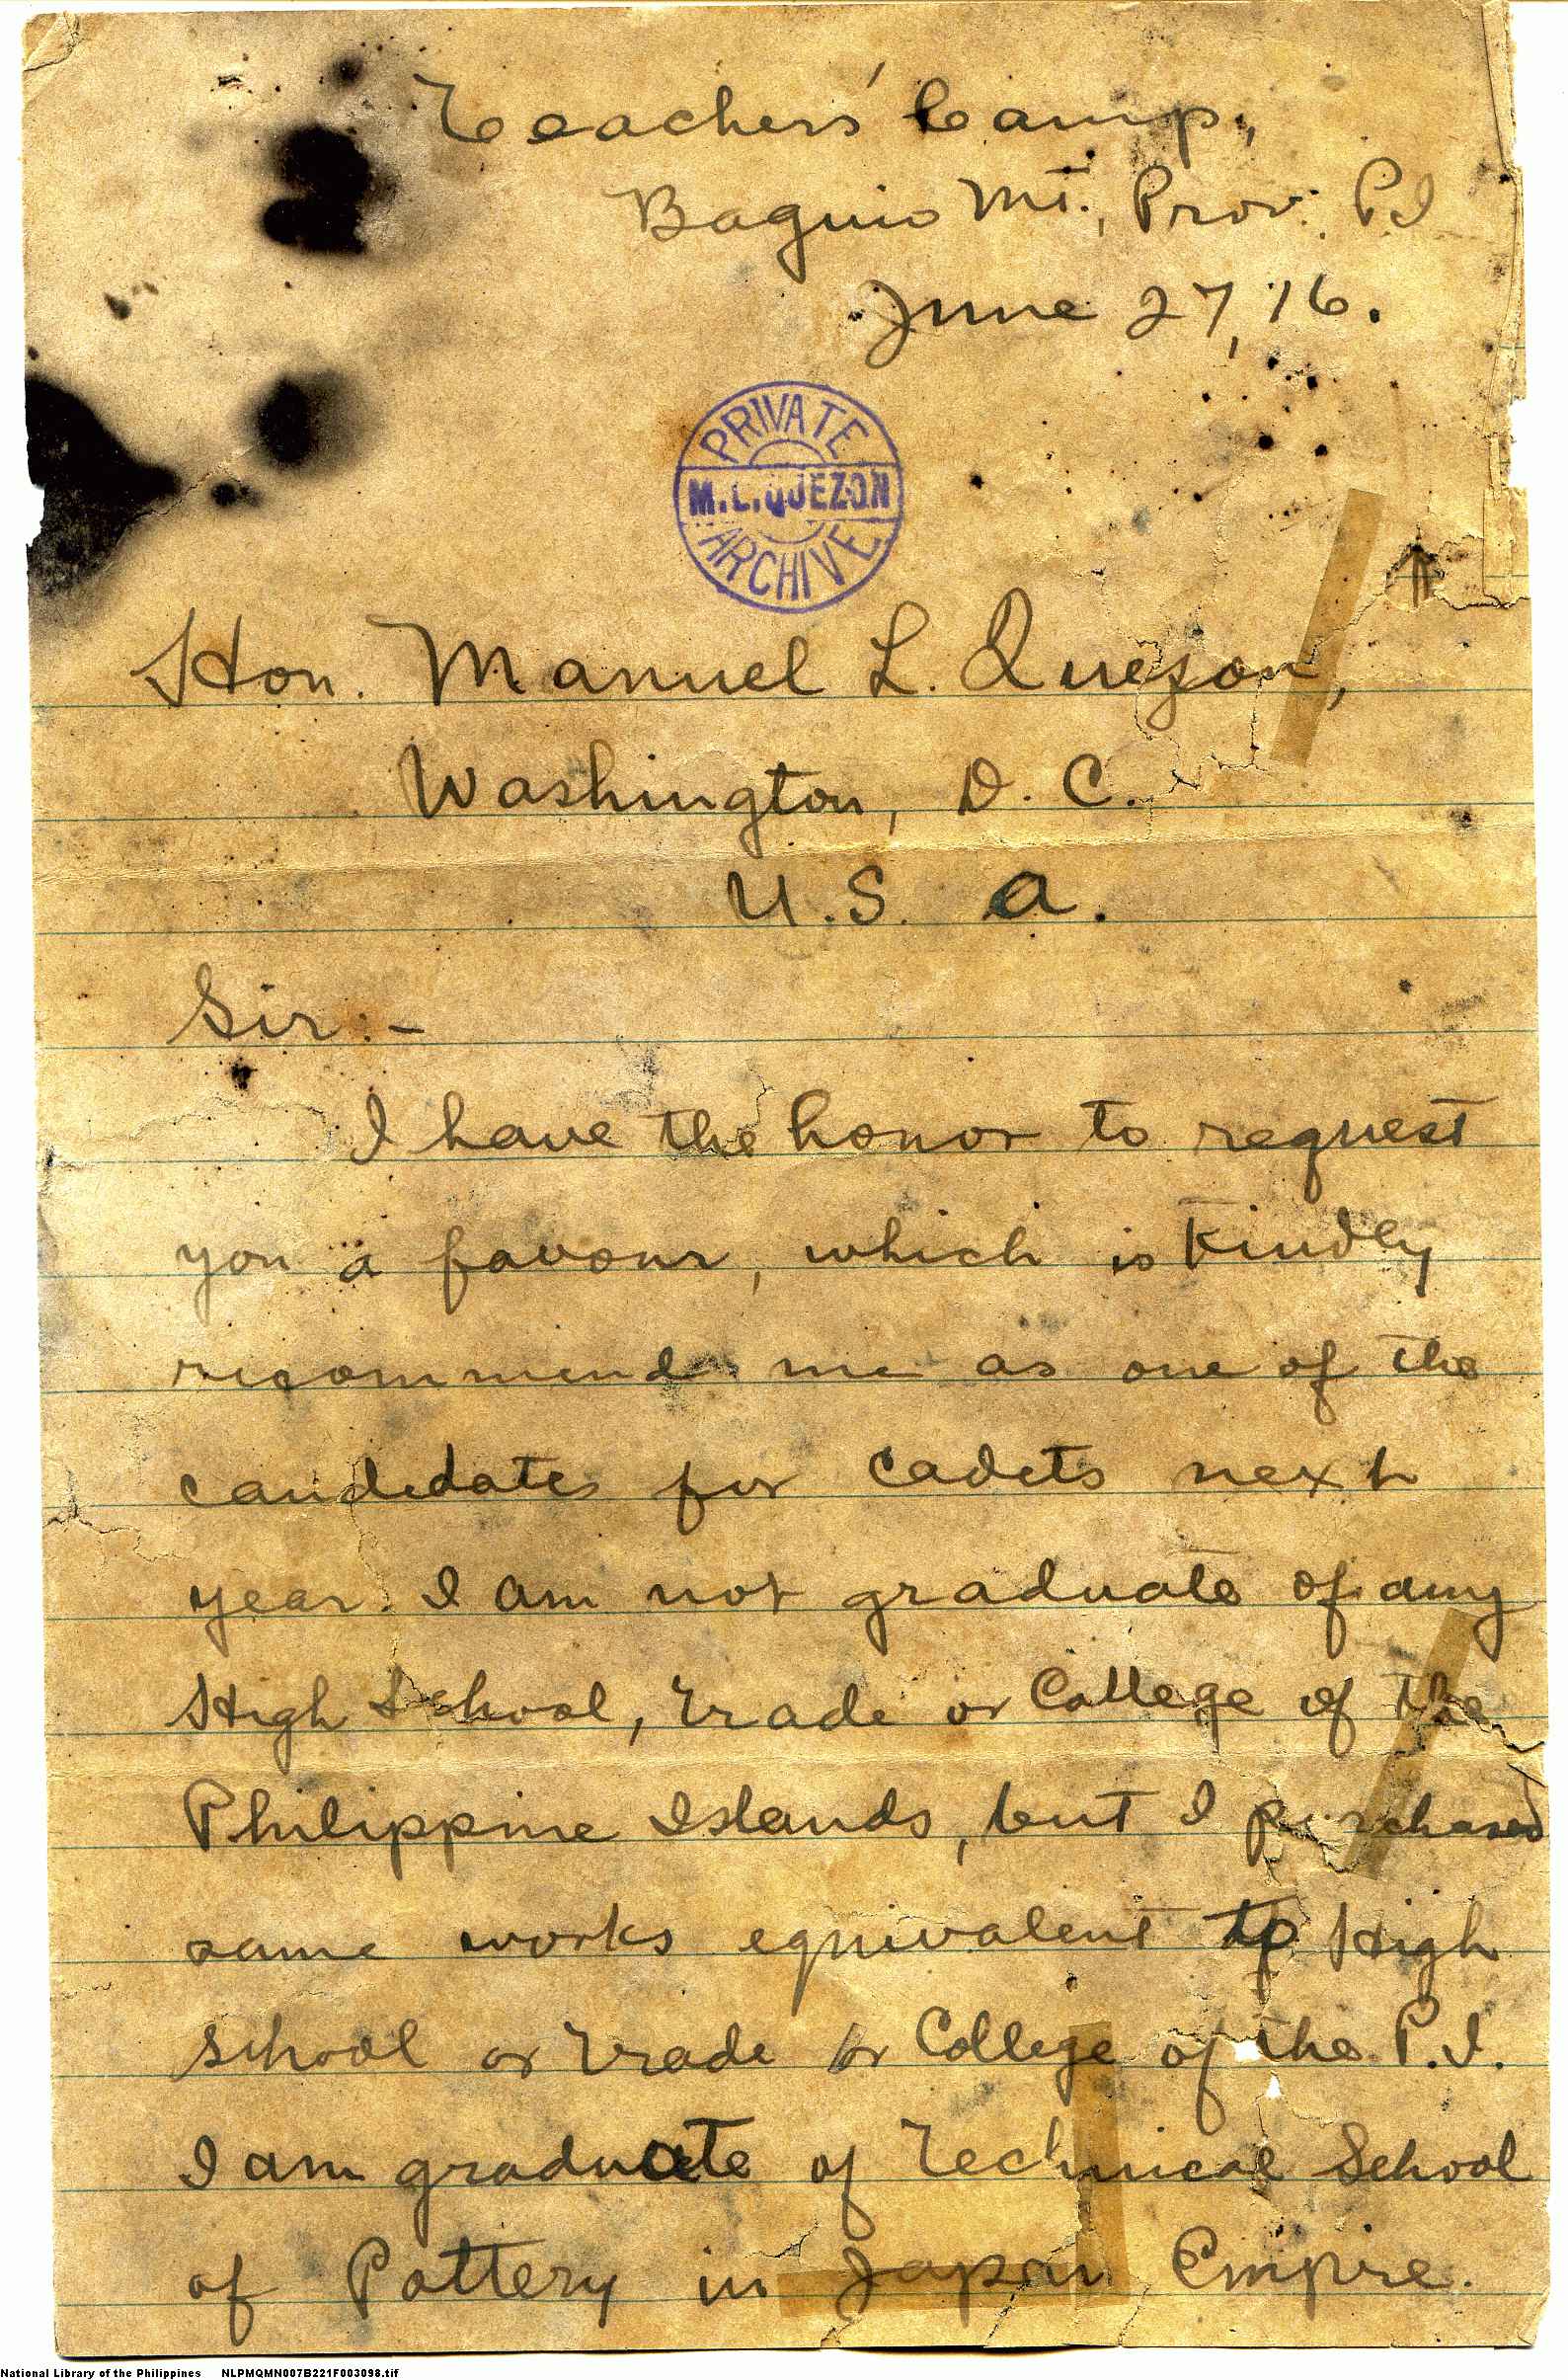 Teachers' Camp,
Baguio Mt., Prov. P.I
June 27, 16.
PRIVATE
M.L.QUEZON
ARCHIVE
Hon. Manuel L. Quezon,
Washington, D. C.
U. S. a.
Sir:-
I have the honor to request
you a favour, which is kindly
recommend me as one of the
candidates for cadets next
year. I am not graduate of any
High School, Trade or College of the
Philippine Islands, but I purchased
same works equivalent to High
School or Trade or College of the P.I.
I am graduate of Technical School
of Pottery in Japan Empire.
National Library of the Philippines NLPMQMN007B221F003098.tif